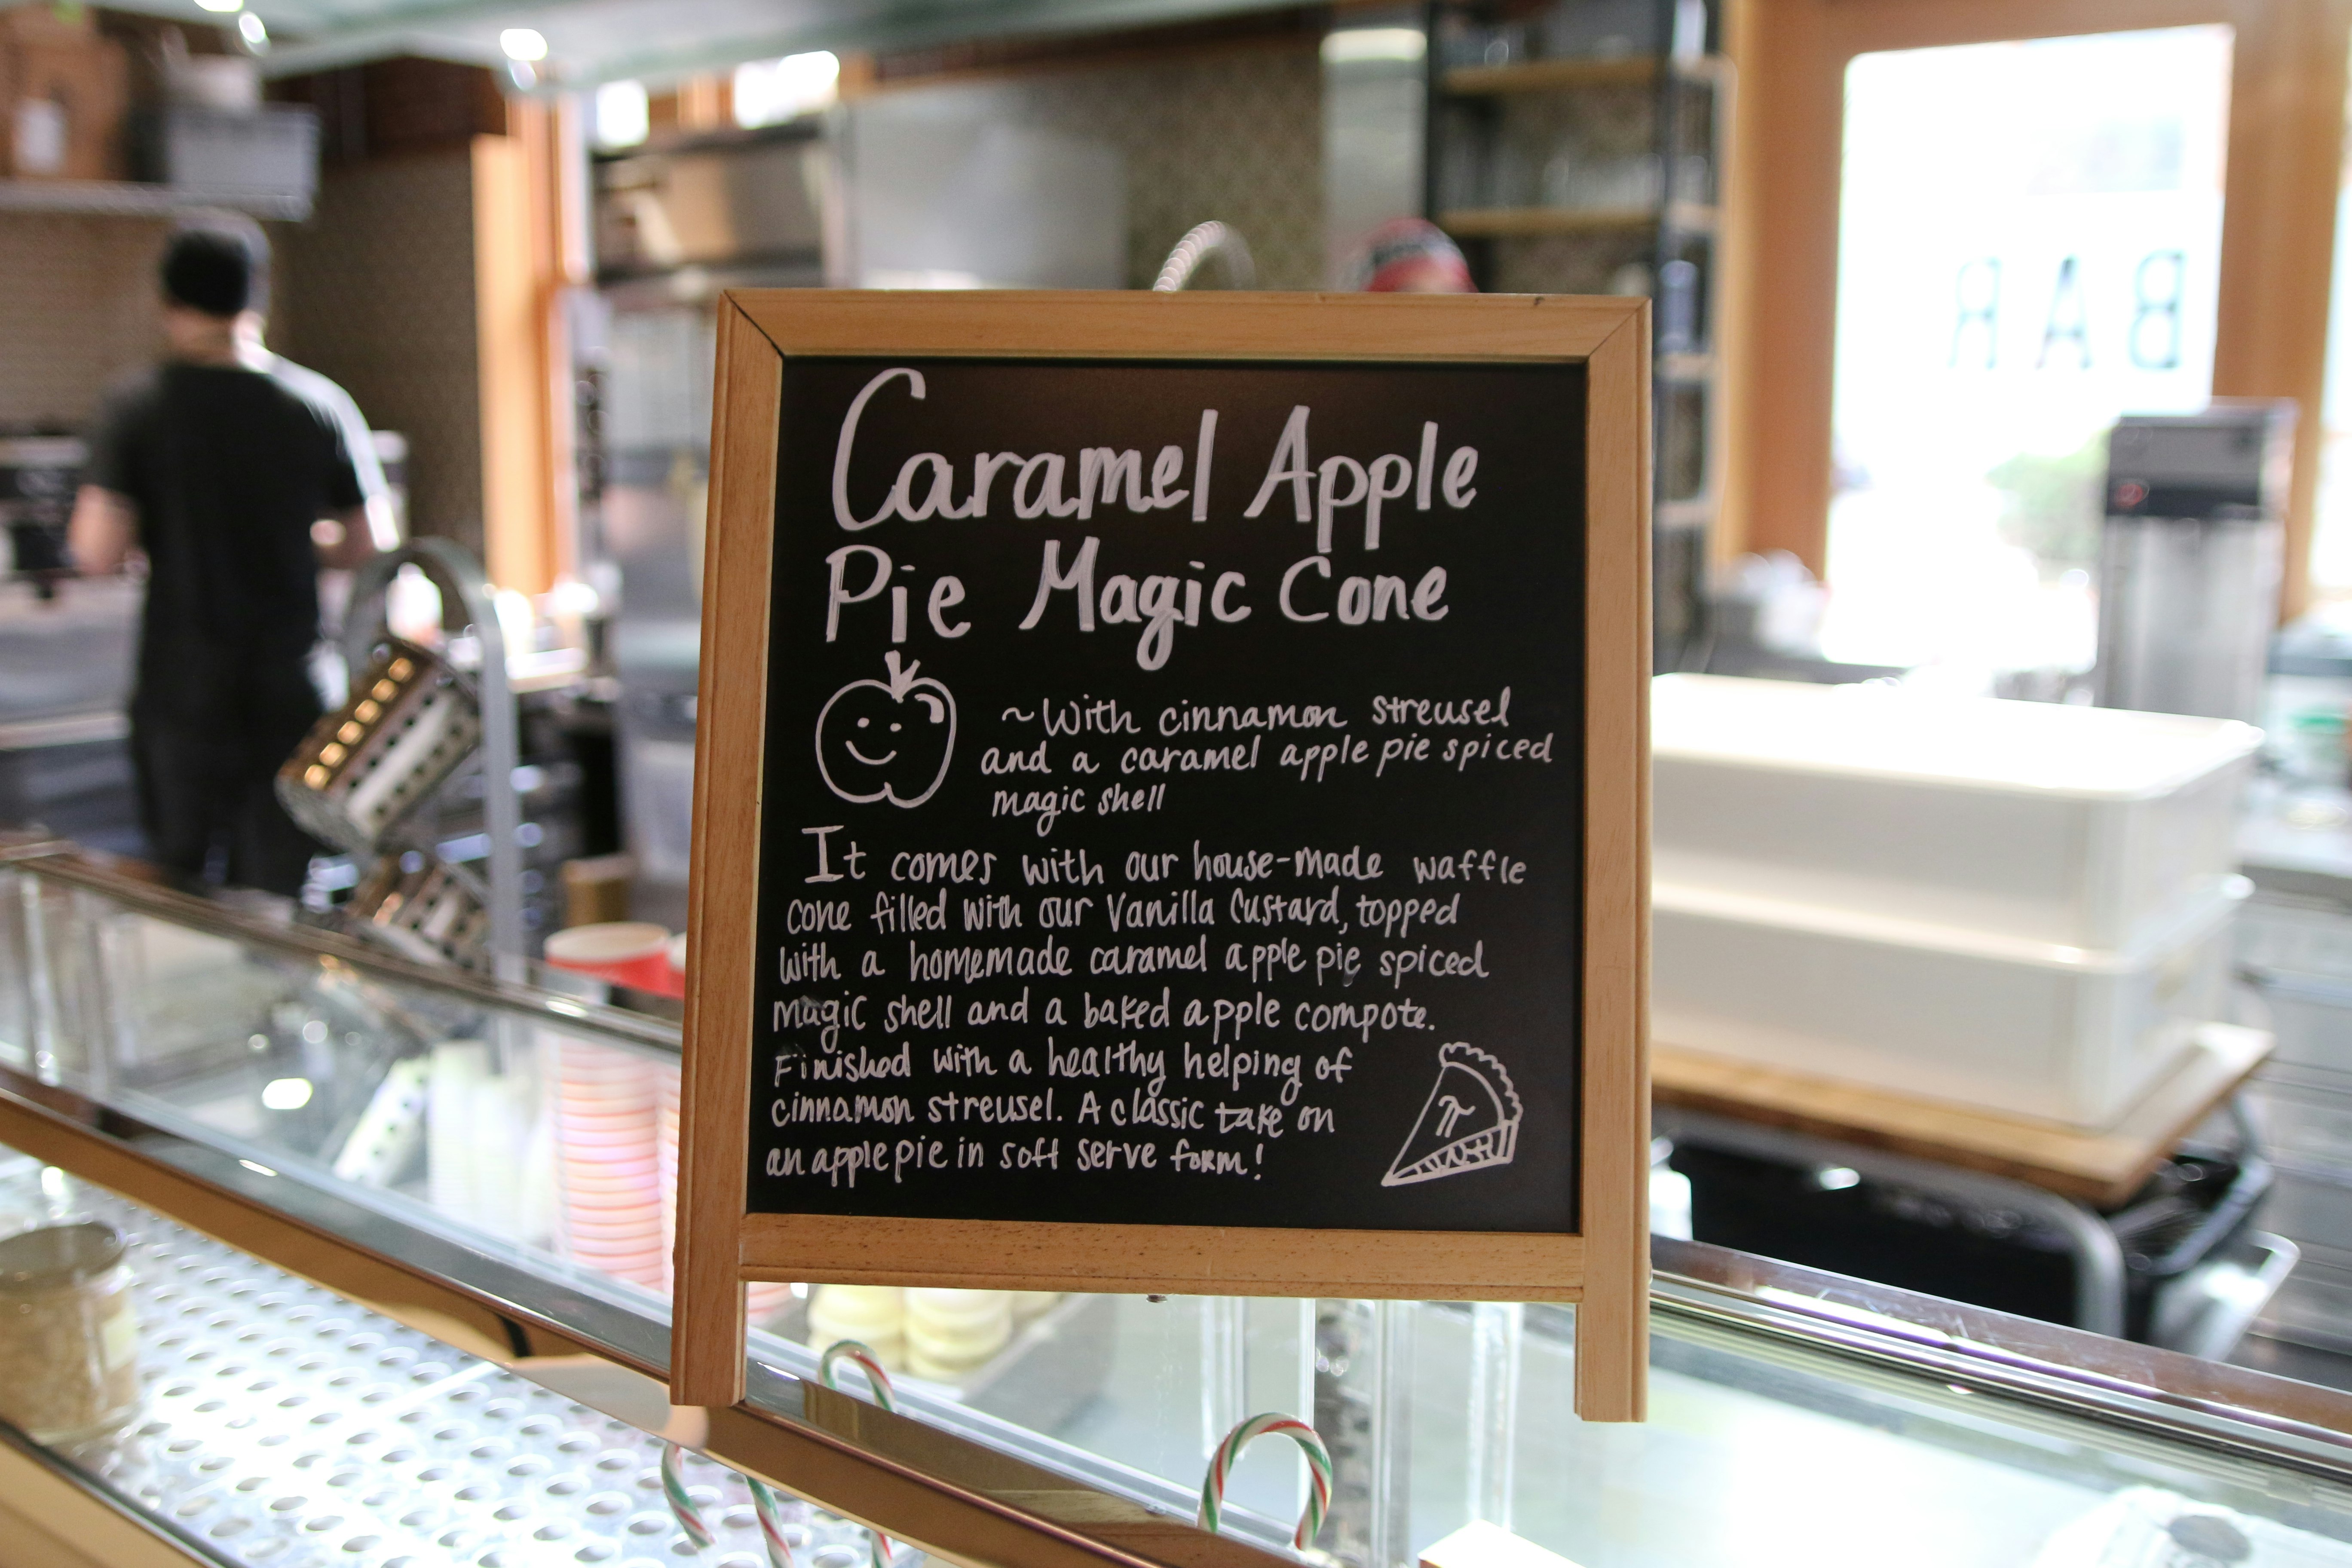 Caramel Apple
Pie Magic Cone
~With cinnamon streusel
and a caramel apple pie spiced
magic shell
It comes with our house-made waffle
cone filled with our Vanilla Custard, topped
with a homemade caramel apple pie spiced
magic shell and a baked apple compote.
Finished with a healthy helping of
cinnamon streusel. A classic take on
an apple pie in soft serve form!
π
BAR